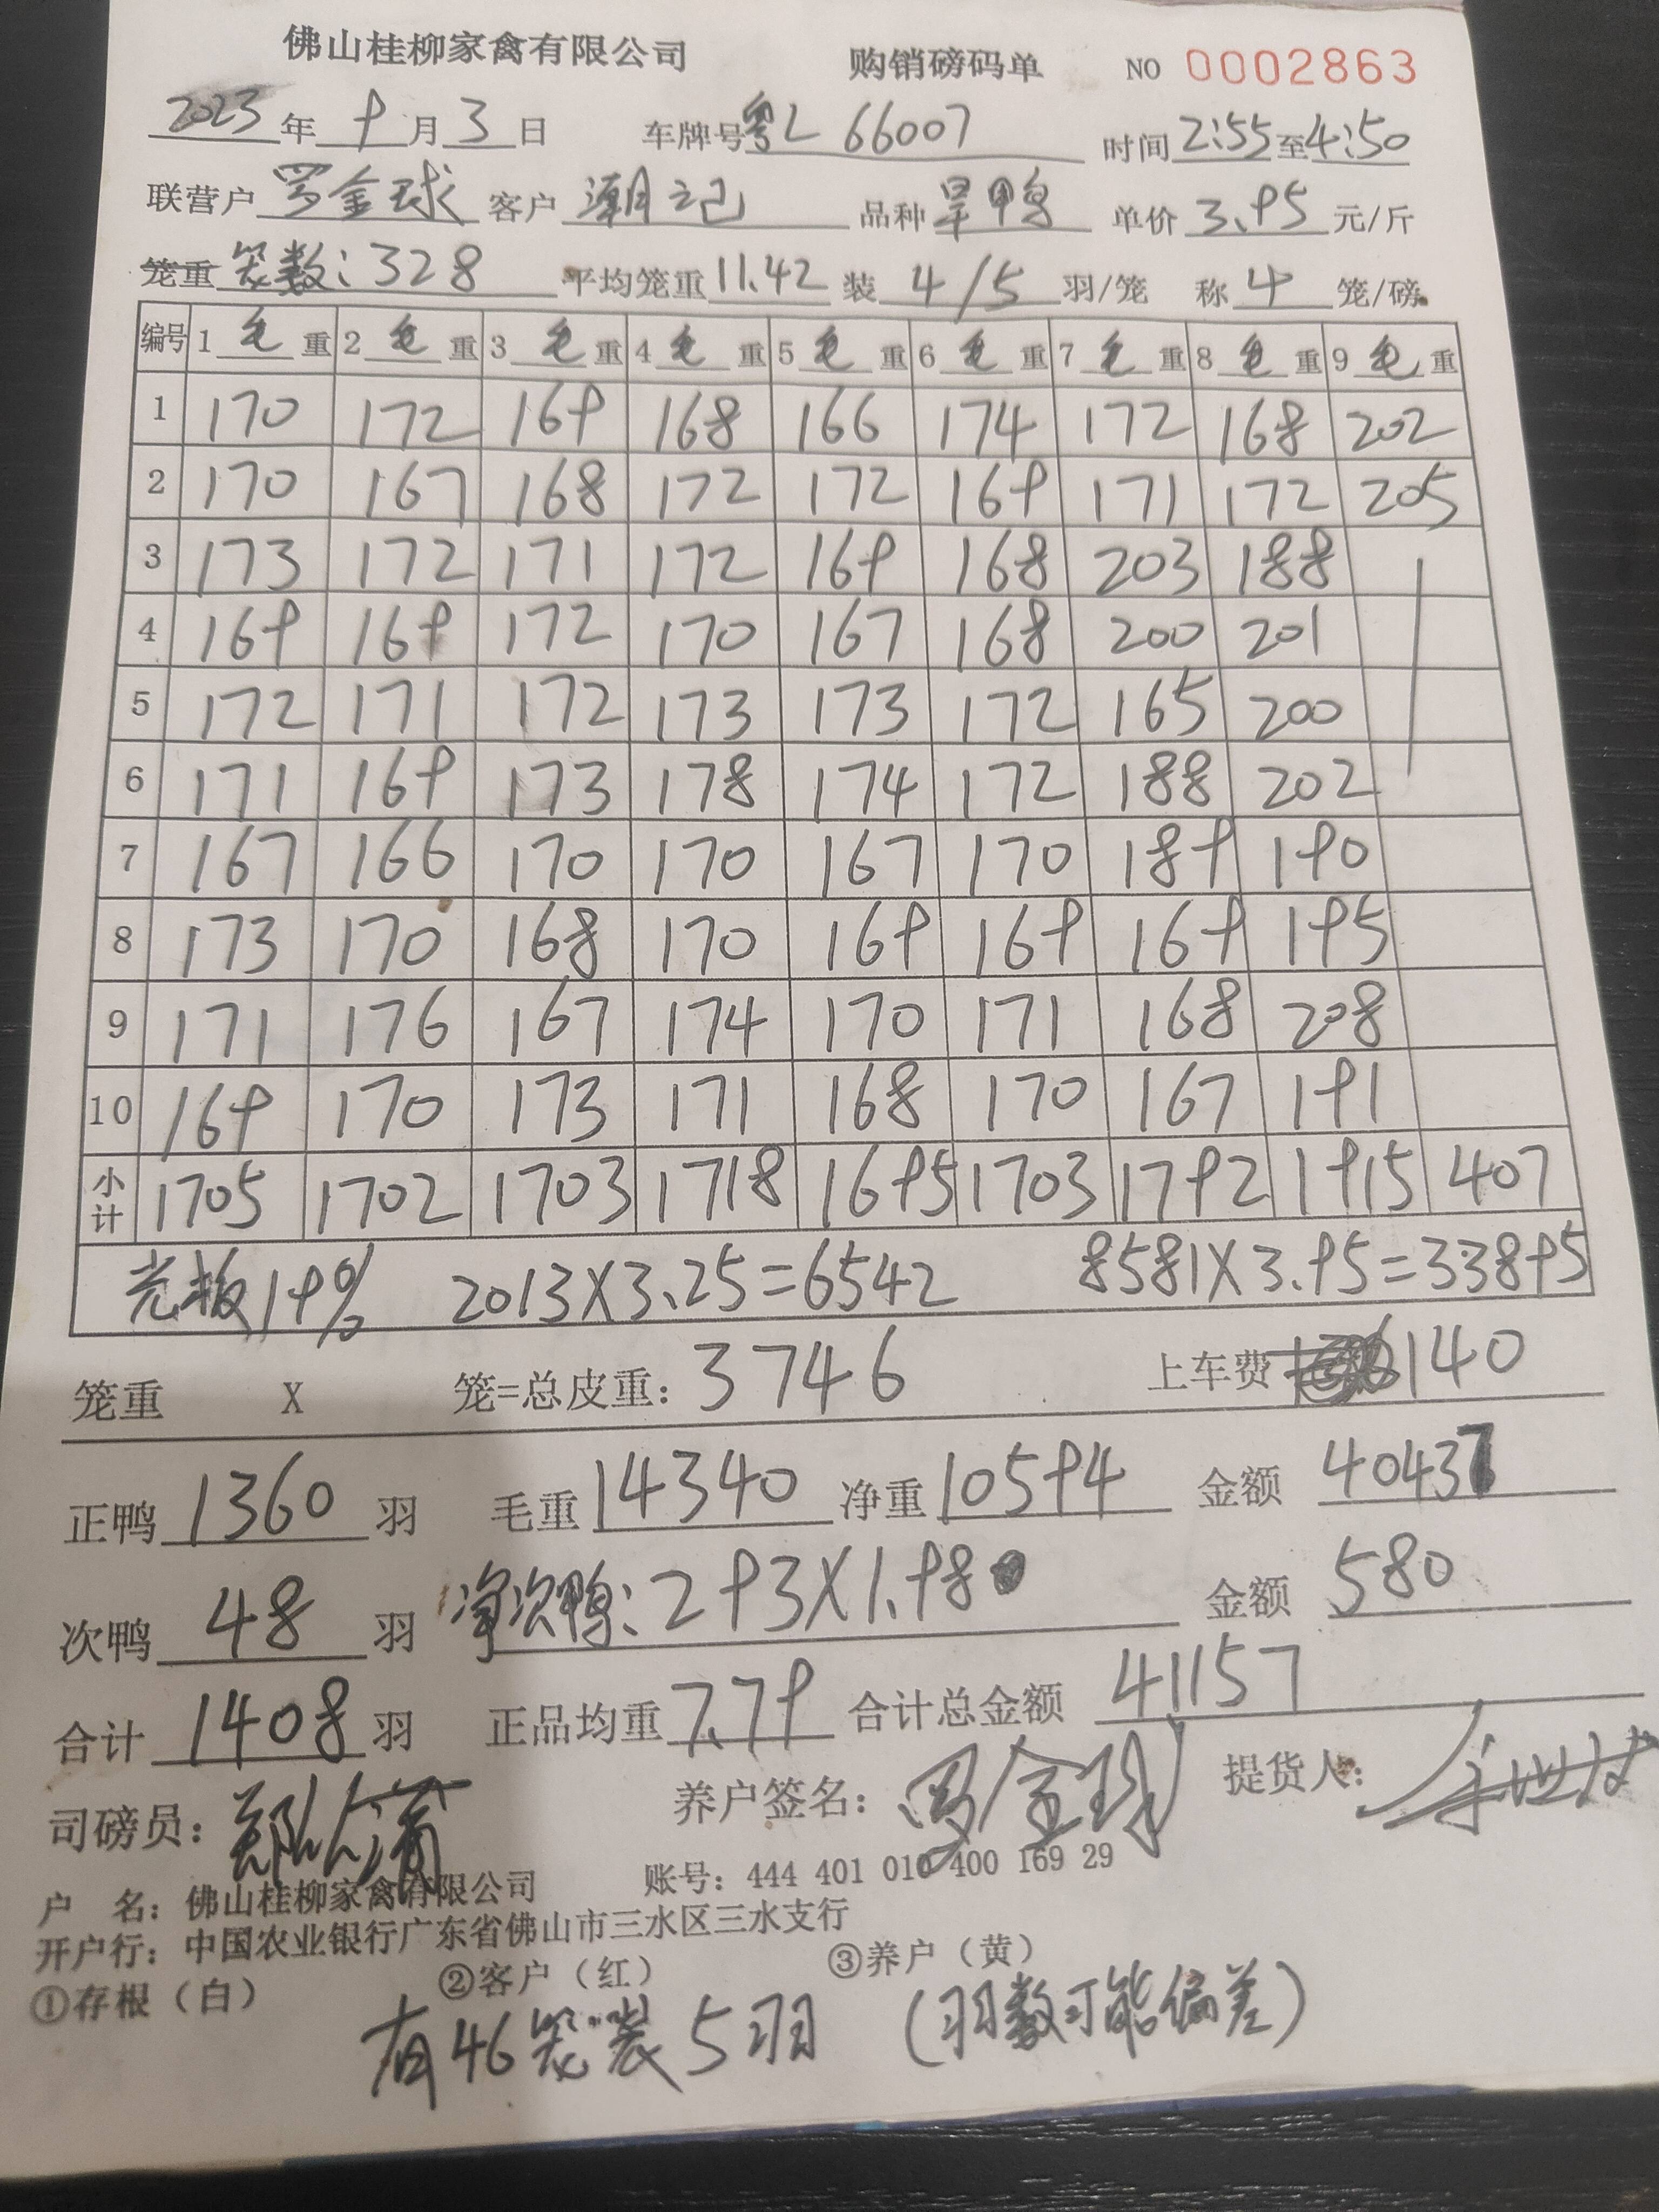 佛山桂柳家禽有限公司 购销磅码单 NO 0002863
2023年9月3日 车牌号粤L 66007 时间2:55至4:50
联营户 罗金球 客户 潮记 品种 旱鸭 单价 3.95 元/斤
笼重 笼数:328 平均笼重 11.42 装 4/5 羽/笼 称 4 笼/磅
编号 1毛重 2毛重 3毛重 4毛重 5毛重 6毛重 7毛重 8毛重 9毛重
1 170 172 169 168 166 174 172 168 202
2 170 167 168 172 172 169 171 172 205
3 173 172 171 172 169 168 203 188
4 169 169 172 170 167 168 200 201
5 172 171 172 173 173 172 165 200
6 171 169 173 178 174 172 188 202
7 167 166 170 170 167 170 189 190
8 173 170 168 170 169 169 169 195
9 171 176 167 174 170 171 168 208
10 169 170 173 171 168 170 167 191
小计 1705 1702 1703 1718 1695 1703 1792 1915 407
光板19% 2013X3.25=6542 8581X3.95=33895
笼重 X 笼=总皮重: 3746 上车费 140
正鸭 1360 羽 毛重 14340 净重 10594 金额 40437
次鸭 48 羽 净次鸭:293X1.98 金额 580
合计 1408 羽 正品均重 7.79 合计总金额 41157
司磅员: 养户签名: 罗金球 提货人:
户 名: 佛山桂柳家禽有限公司 账号: 444 401 010 400 169 29
开户行: 中国农业银行广东省佛山市三水区三水支行
①存根（白） ②客户（红） ③养户（黄）
有46笼装5羽 (羽数可能偏差)